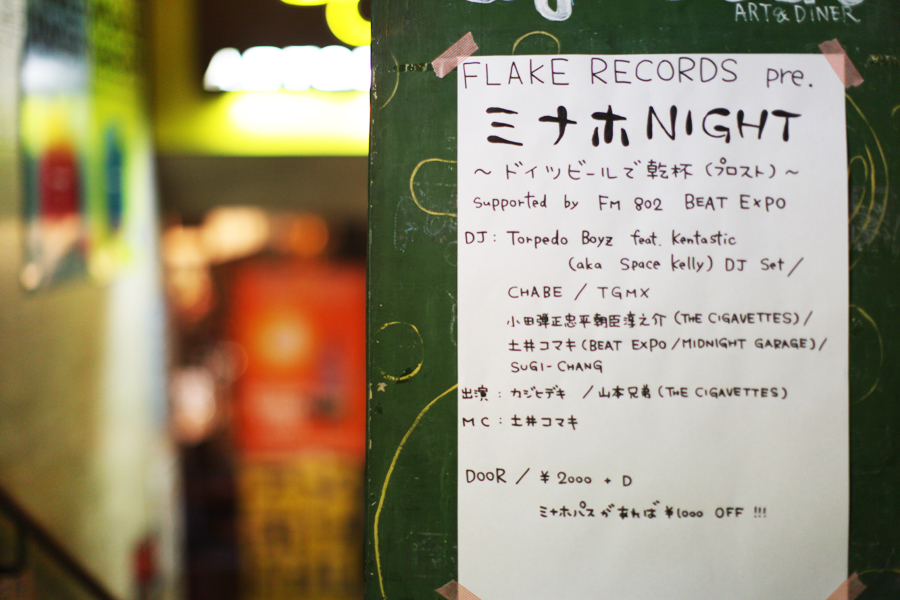 ART & DINER
FLAKE RECORDS pre.
ミナホ NIGHT
～ドイツビールで乾杯（プロスト）～
supported by FM 802 BEAT EXPO
DJ : Torpedo Boyz feat. Kentastic
(aka Space Kelly) DJ Set /
CHABE / TGMX
小田弾正忠平朝臣淳之介 (THE CIGAVETTES) /
土井コマキ (BEAT EXPO / MIDNIGHT GARAGE) /
SUGI-CHANG
出演 : カジヒデキ / 山本兄弟 (THE CIGAVETTES)
MC : 土井コマキ
DOOR / ¥2000 + D
ミナホパスがあれば ¥1000 OFF !!!